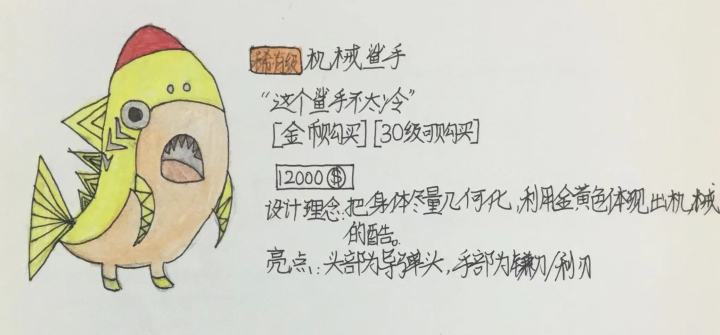 稀有级 机械鲨手
“这个鲨手不太冷”
[金币购买][30级可购买]
12000($)
设计理念:把身体尽量几何化,利用金黄色体现出机械
的酷。
亮点:头部为导弹头,手部为镰刀/利刃